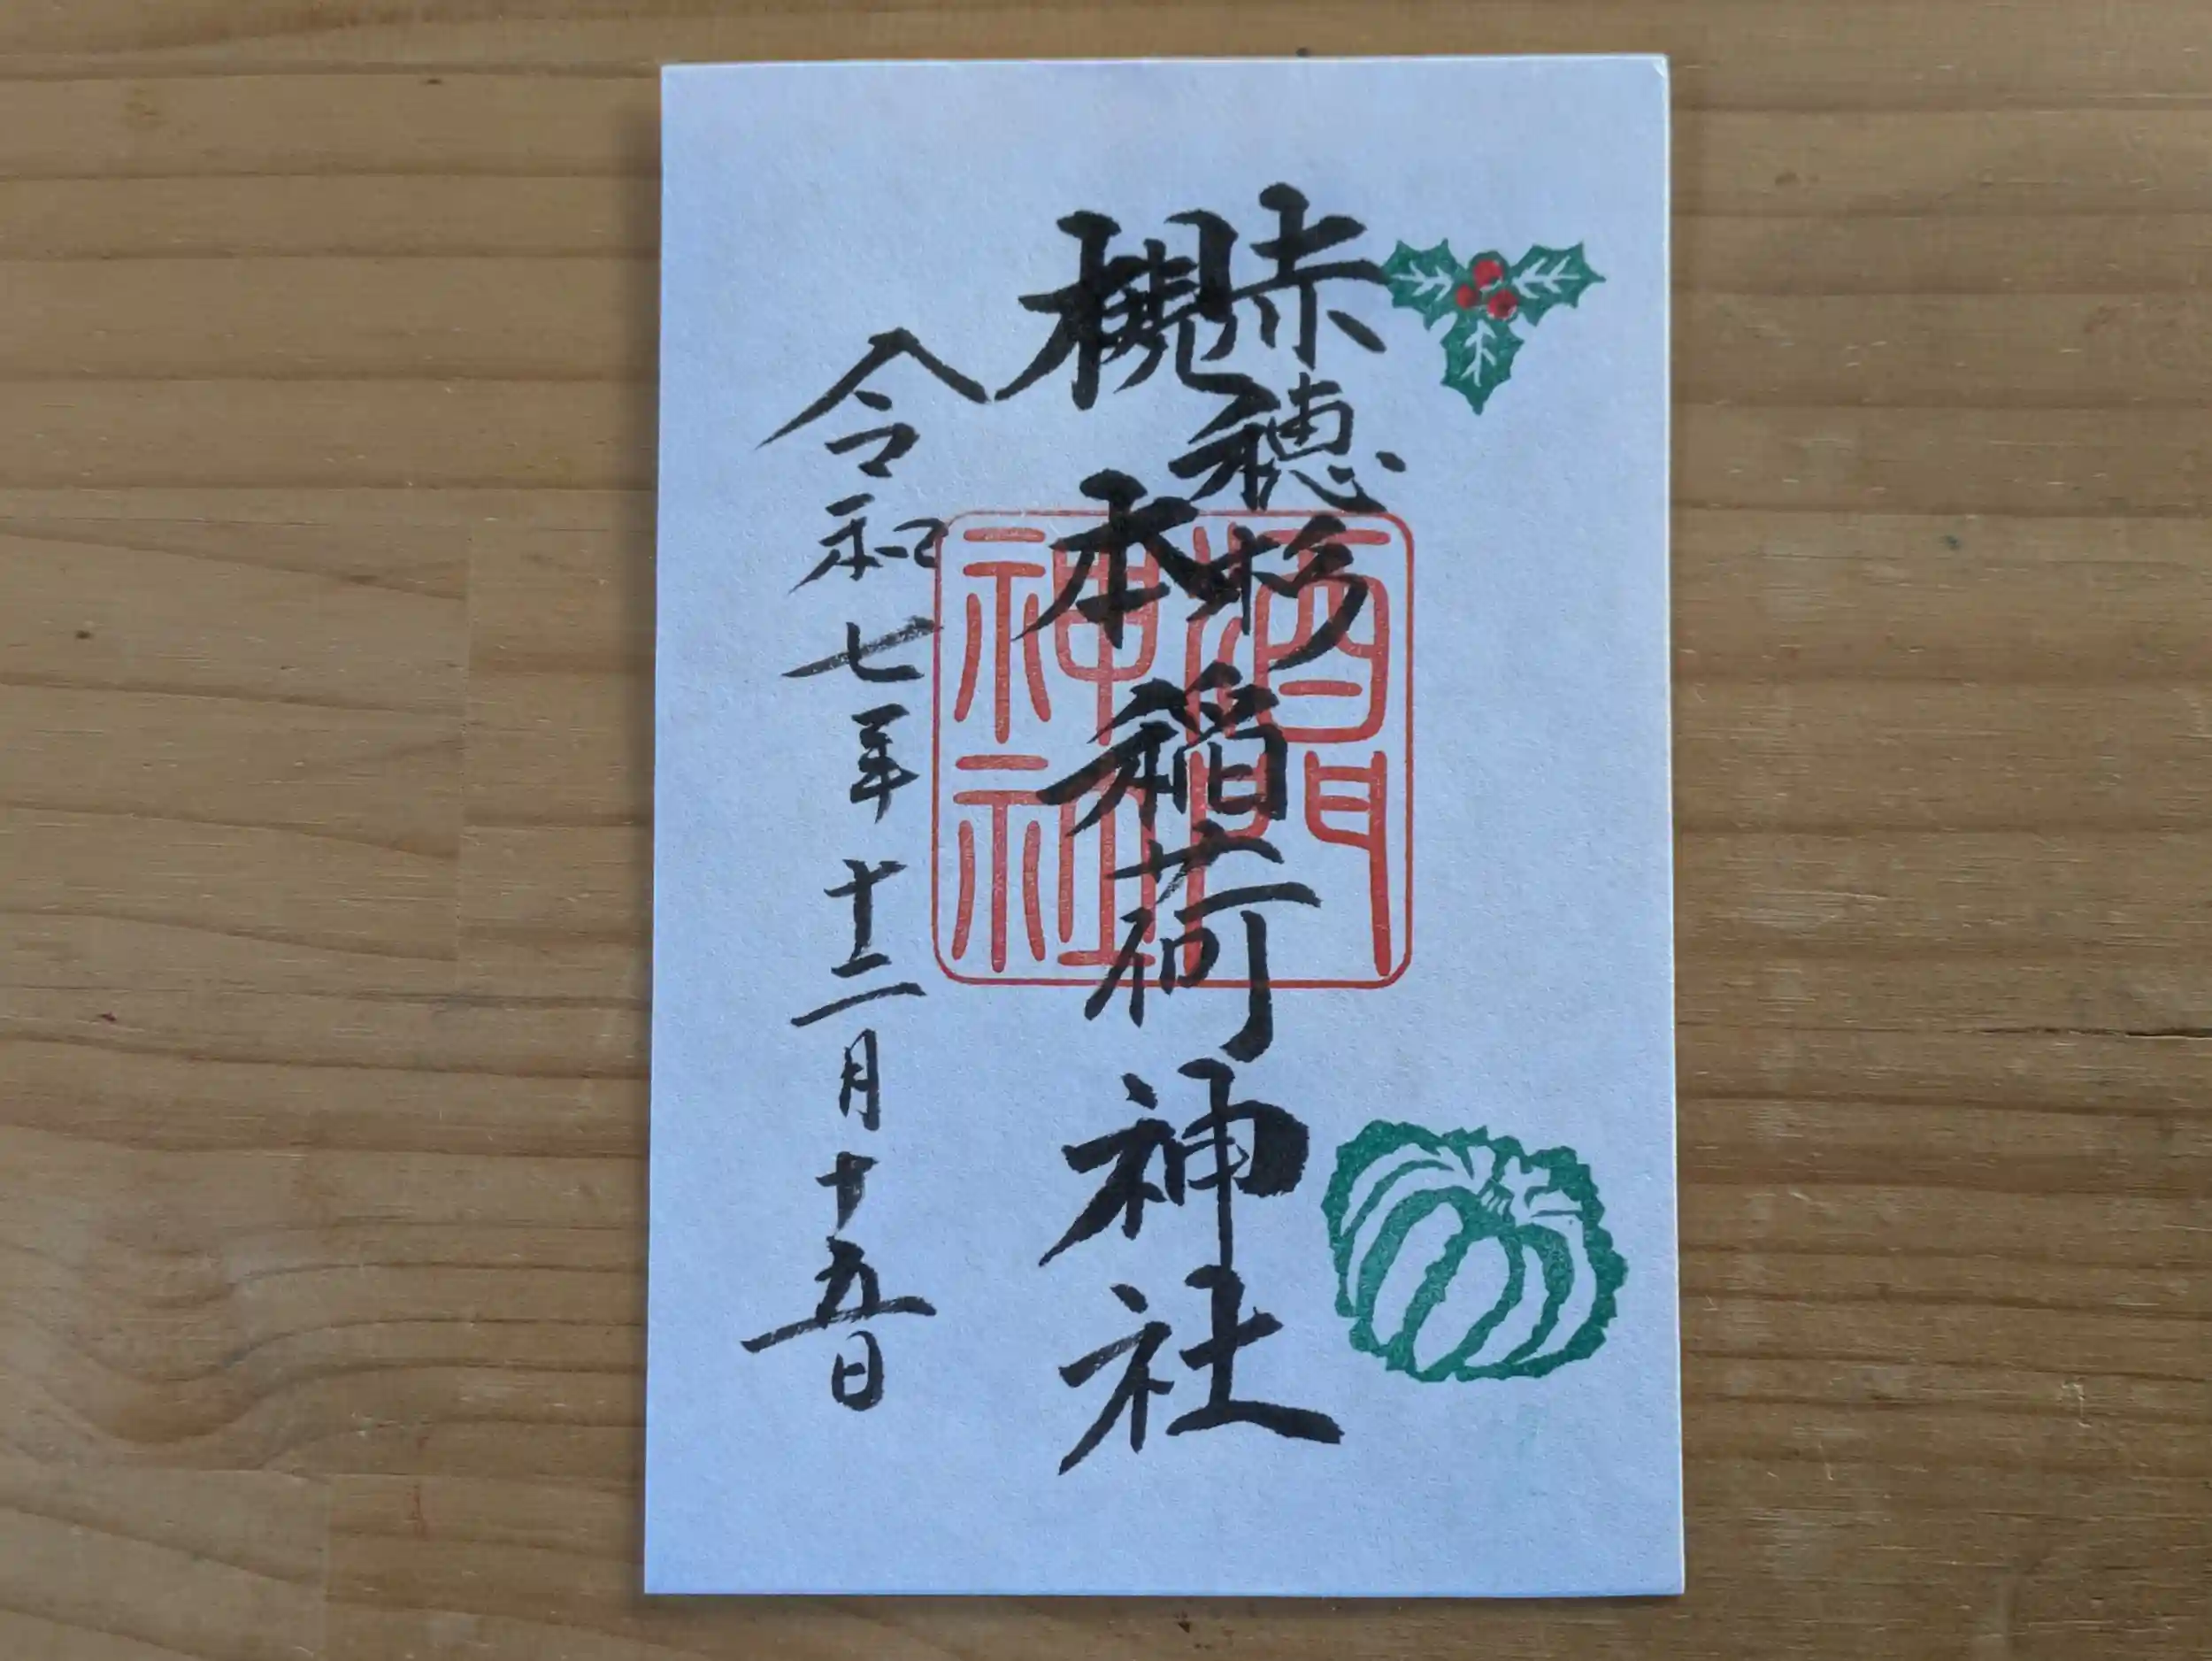 赤穂杉
槻本
稲荷神社
令和七年十二月十五日
酒門
神社